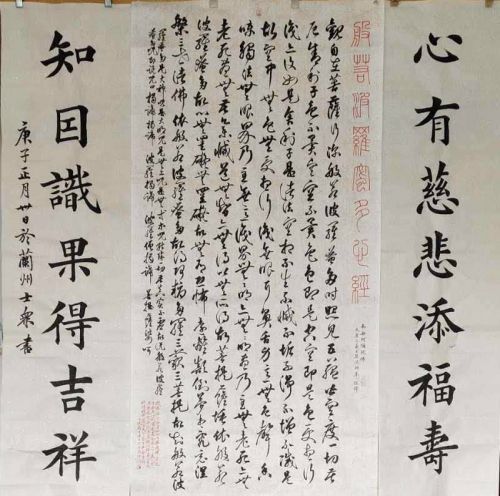 心有慈悲添福壽
般若波羅蜜多心經
觀自在菩薩行深般若波羅蜜多時照見五蘊皆空度一切苦
厄舍利子色不異空空不異色色即是空空即是色受想行
識亦復如是舍利子是諸法空相不生不滅不垢不淨不增不減是
故空中無色無受想行識無眼耳鼻舌身意無色聲香
味觸法無眼界乃至無意識界無無明亦無無明盡乃至無老死亦無
老死盡無苦集滅道無智亦無得以無所得故菩提薩埵依般若
波羅蜜多故心無罣礙無罣礙故無有恐怖遠離顛倒夢想究竟涅
槃三世諸佛依般若波羅蜜多故得阿耨多羅三藐三菩提故知般若波
羅蜜多是大神咒是大明咒是無上咒是無等等咒能除一切苦真實不虛故說般若波羅蜜多
咒即說咒曰揭諦揭諦 波羅揭諦 波羅僧揭諦 菩提薩婆訶
知囙識果得吉祥
庚子正月卅日於蘭州士乘書